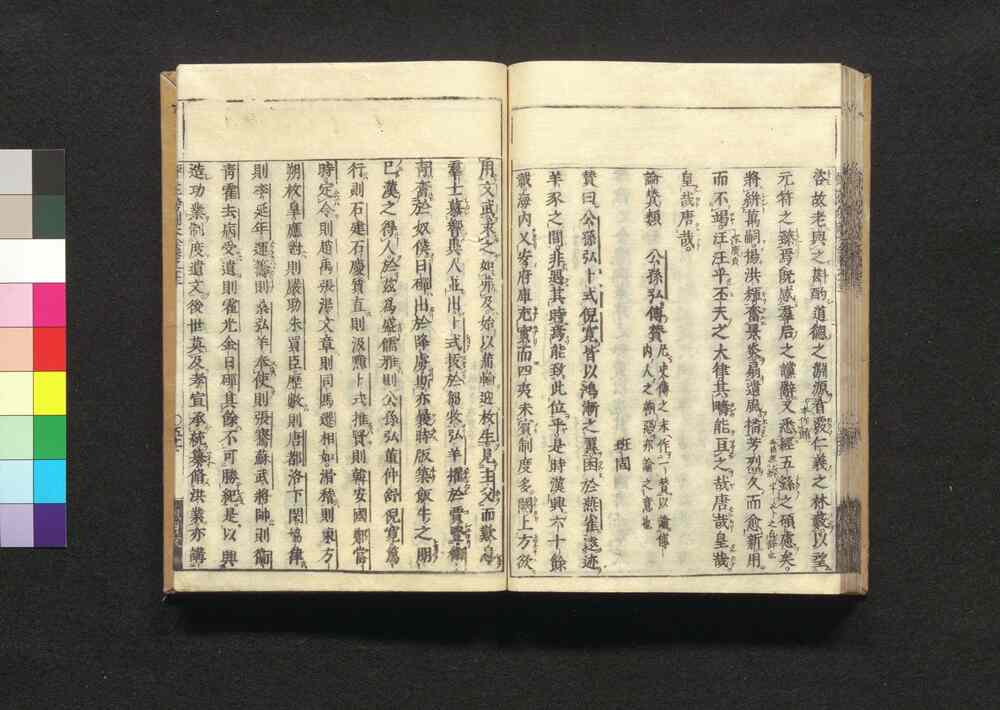 咨故老與之斟酌道德之淵源肴覈仁義之林藪以望
元符之臻焉旣感羣后之讜辭又悉經五繇之碩慮矣
將絣萬嗣揚洪輝奮景炎扇遺風播芳烈久而愈新用
而不竭汪汪乎丕天之大律其疇能亘之哉唐哉皇哉
皇哉唐哉
論其類 公孫弘傳贊
班固
贊曰公孫弘卜式倪寬皆以鴻漸之翼困於燕雀遠迹
羊豕之間非遇其時焉能致此位乎是時漢興六十餘
載海內乂安府庫充實而四夷未賓制度多闕上方欲
用文武求之如弗及始以蒲輪迎枚生見主父而歎息
羣士慕嚮異人並出卜式拔於芻牧弘羊擢於賈豎衛
靑奮於奴僕日磾出於降虜斯亦曩時版築飯牛之朋
已漢之得人於茲爲盛儒雅則公孫弘董仲舒倪寬篤
行則石建石慶質直則汲黯卜式推賢則韓安國鄭當
時定令則趙禹張湯文章則司馬遷相如滑稽則東方
朔枚皐應對則嚴助朱買臣歷數則唐都洛下閎協律
則李延年運籌則桑弘羊奉使則張騫蘇武將帥則衛
靑霍去病受遺則霍光金日磾其餘不可勝紀是以興
造功業制度遺文後世莫及孝宣承統纂脩洪業亦講